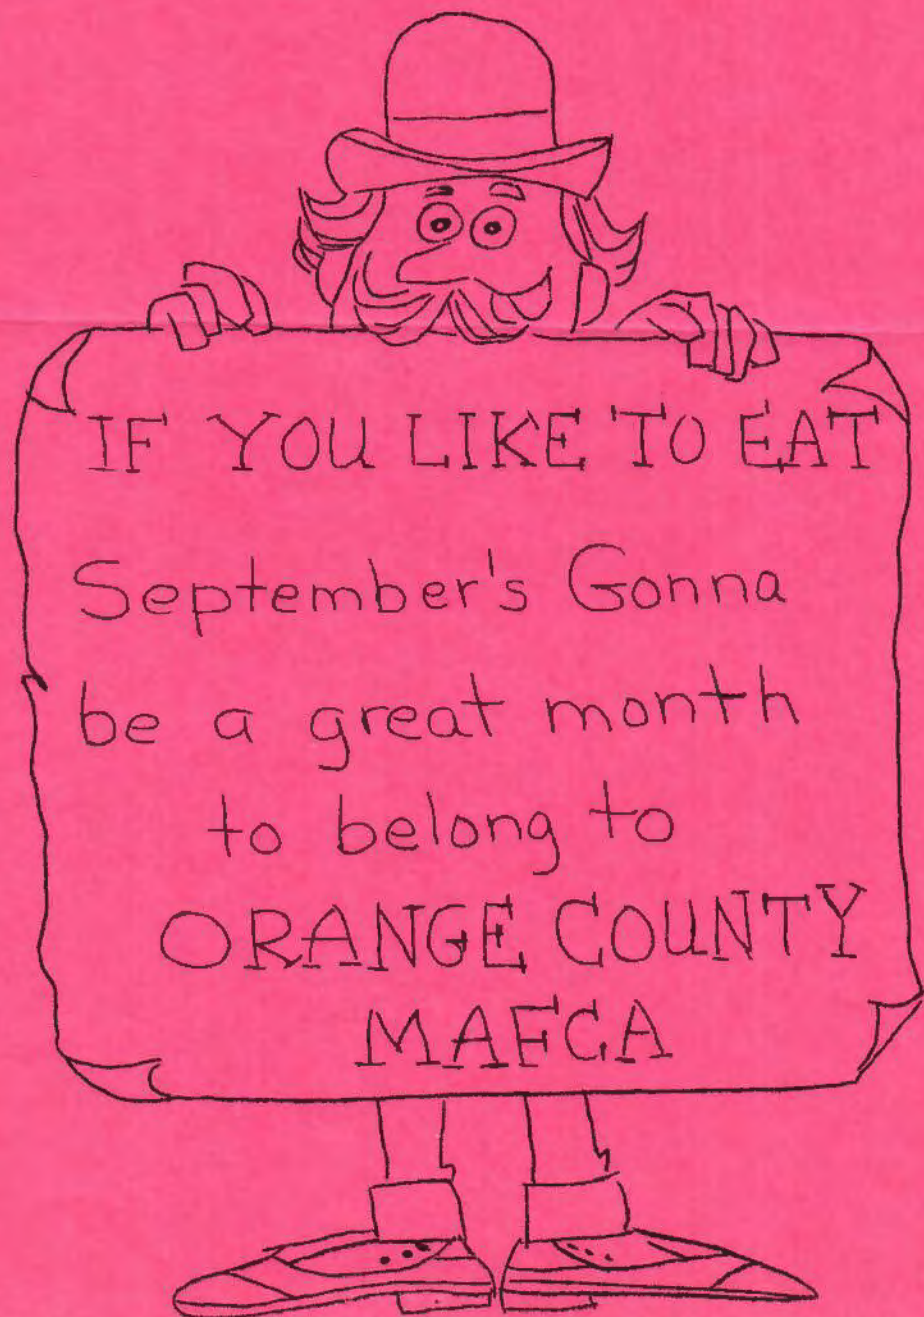 IF YOU LIKE TO EAT
September's Gonna
be a great month
to belong to
ORANGE COUNTY
MAFCA